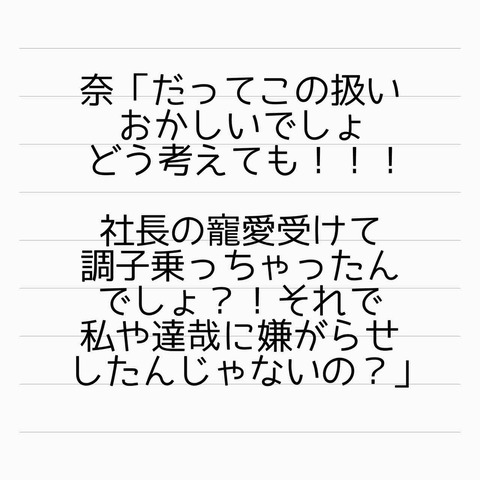 奈「だってこの扱い
おかしいでしょ
どう考えても！！！
社長の寵愛受けて
調子乗っちゃったん
でしょ？！それで
私や達哉に嫌がらせ
したんじゃないの？」